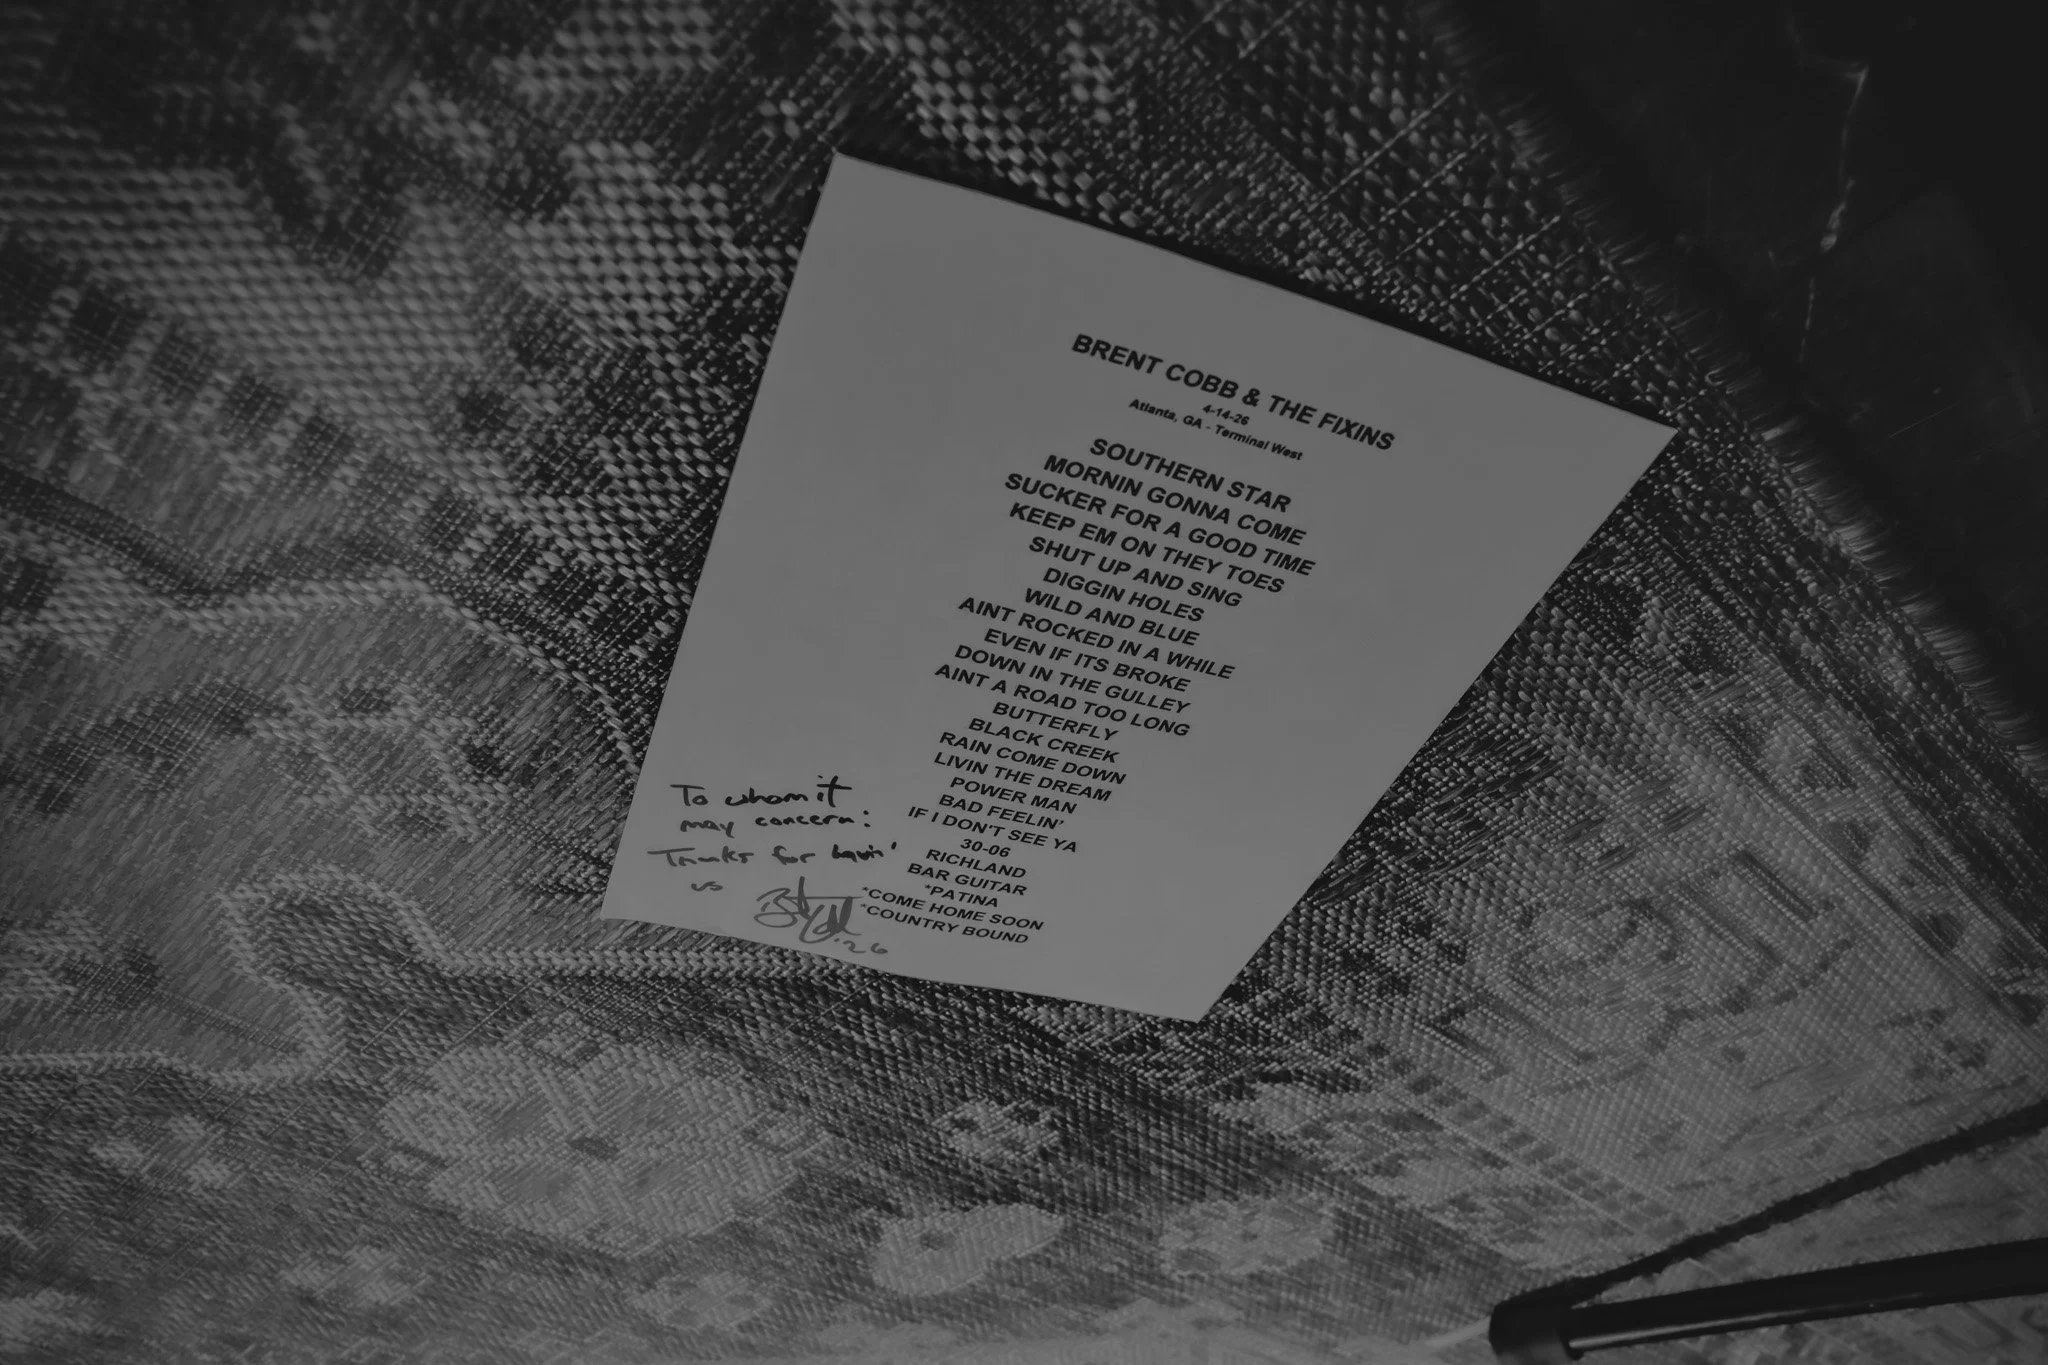 BRENT COBB & THE FIXINS
4-14-26
Atlanta, GA - Terminal West
SOUTHERN STAR
MORNIN GONNA COME
SUCKER FOR A GOOD TIME
KEEP EM ON THEY TOES
SHUT UP AND SING
DIGGIN HOLES
WILD AND BLUE
AINT ROCKED IN A WHILE
EVEN IF ITS BROKE
DOWN IN THE GULLEY
AINT A ROAD TOO LONG
BUTTERFLY
BLACK CREEK
RAIN COME DOWN
LIVIN THE DREAM
POWER MAN
BAD FEELIN'
IF I DON'T SEE YA
30-06
RICHLAND
BAR GUITAR
*PATINA
*COME HOME SOON
*COUNTRY BOUND
To whom it
may concern:
Thanks for havin'
us
'26